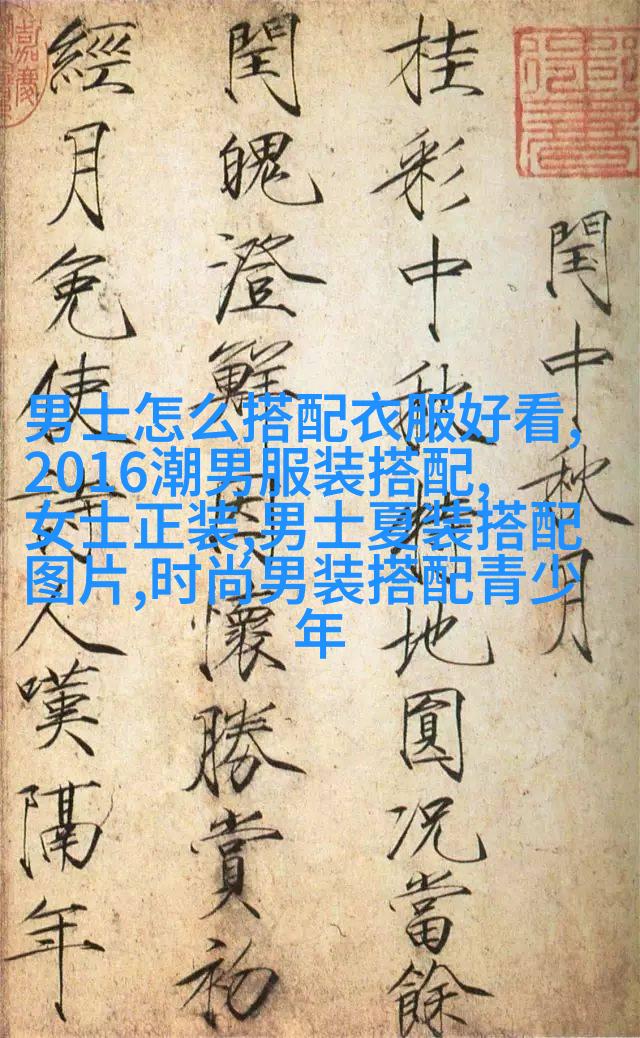 閏中秋月
桂彩中秋特地圓况當餘
閏魄澄鮮因懷勝賞初
經月免使詩人嘆隔年
男士怎么搭配衣服好看,
2016潮男服装搭配,
女士正装,男士夏装搭配
图片,时尚男装搭配青少
年